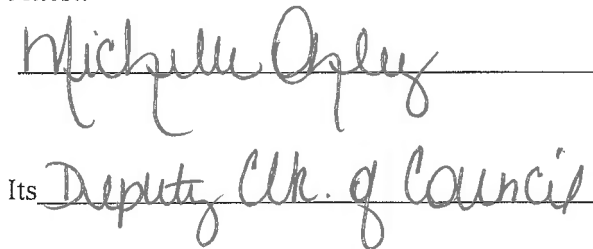 Michelle
Its Deputy Clk. of Council